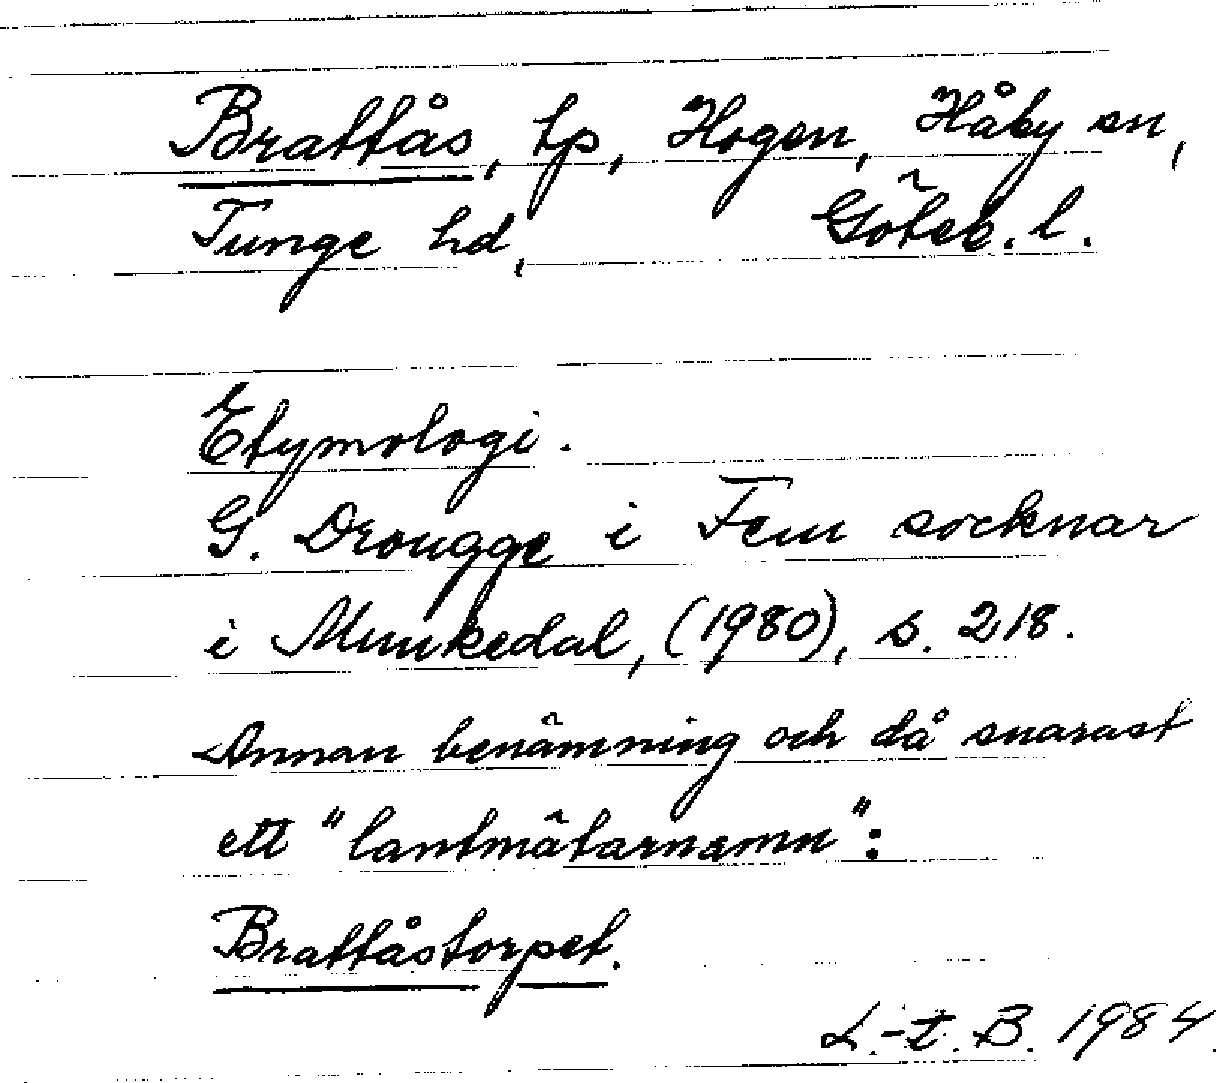 Brattås, tp, Hogen, Håby sn,
Tunge hd, Göteb. l.
Etymologi.
G. Drougge i Fem socknar
i Munkedal, (1980), s. 218.
Annan benämning och då snarast
ett "lantmätarnamn":
Brattåstorpet.
L.-t. B. 1984